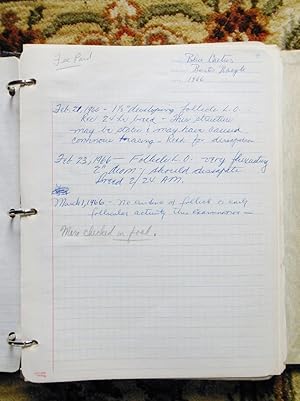 For Paul
Blue Cactus
1966
Feb. 21, 1966 - 1½" developing follicle L.O. -
Rec 24 hr breed - This structure
may be static & may have caused
continuous teasing - Rech for dissipation
Feb 23, 1966 - Follicle L.O. very fluctuating
2" diam; should dissipate
breed 2/24 A.M.
March 1, 1966 - no evidence of follicle or early
follicular activity this examination -
Mare checked in foal.